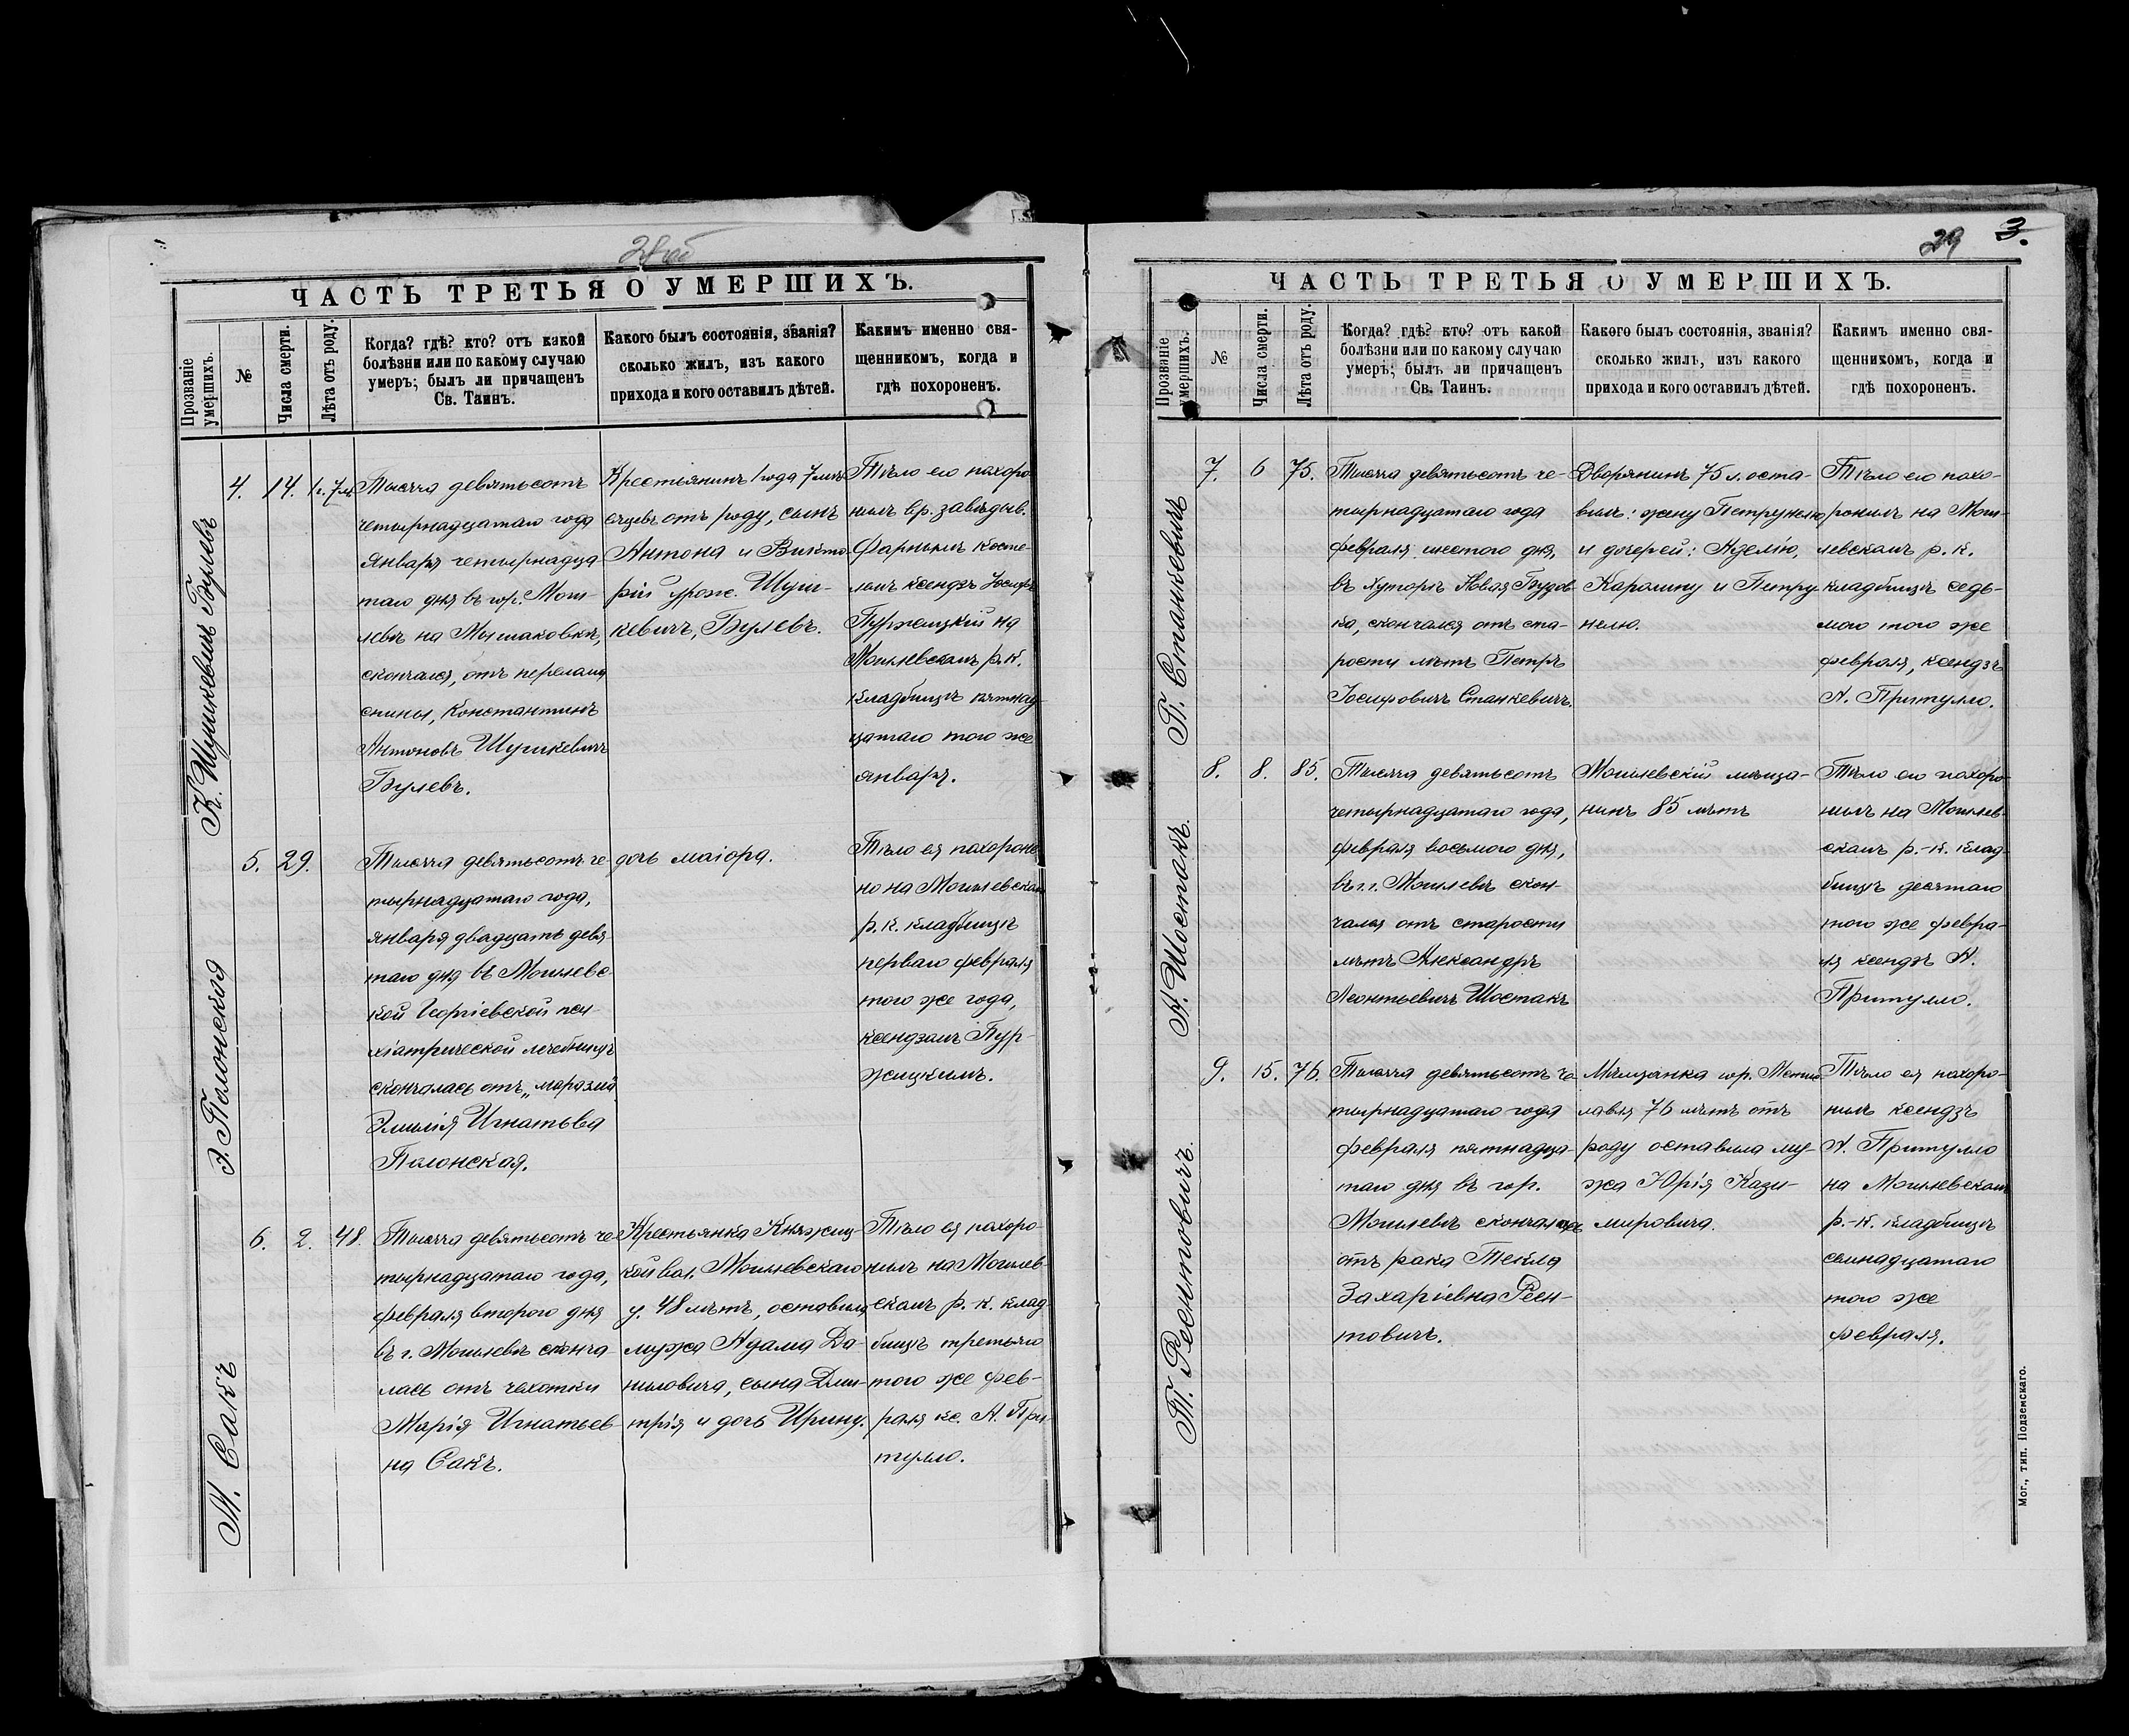 ЧАСТЬ ТРЕТЬЯ О УМЕРШИХЪ.
Прозваніе умершихъ.
№
Числа смерти.
Лѣта отъ роду.
Когда? гдѣ? кто? отъ какой
болѣзни или по какому случаю
умеръ; былъ ли причащенъ
Св. Таинъ.
Какого былъ состоянія, званія?
сколько жилъ, изъ какого
прихода и кого оставилъ дѣтей.
Каким именно свя-
щенникомъ, когда и
гдѣ похороненъ.
К. Шушкевичъ Булевъ
4.
14.
1 г. 7 м.
Тысяча девятьсотъ
четырнадцатаго года
Января четырнадца
таго дня въ гор. Моги-
левѣ на Мышаковкѣ,
скончался, отъ перелома
спины, Константинъ
Антоновъ Шушкевичъ
Булевъ.
Крестьянинъ 1 года 7 мѣ
сяцевъ отъ роду, сынъ
Антона и Викто-
ріи урож. Шуш-
кевичъ, Булевъ.
Тѣло его похоро
нилъ вр. завѣдыв.
Фарнымъ косте-
ломъ ксендзъ Іосифъ
Пуржицкій на
Могилевскомъ р.к.
кладбищѣ пятнад
цатаго того же
января.
Э. Полонская
5.
29.
Тысяча девятьсотъ че
тырнадцатаго года,
января двадцать девя
таго дня въ Могилевс-
кой Георгіевской пси-
хіатрической лечебницѣ
скончалась отъ „маразма
Эмилія Игнатьева
Полонская.
дочь маіора.
Тѣло ея похороне
но на Могилевском
р.к. кладбищѣ
перваго февраля
того же года,
ксендзомъ Пур-
жицкимъ.
М. Сакъ
6.
2.
48.
Тысяча девятьсотъ че
тырнадцатаго года,
февраля второго дня
въ г. Могилевѣ сконча
лась отъ чахотки
Марія Игнатьев
на Сакъ.
Крестьянка Княжиц-
кой вол. Могилевскаго
у. 48 лѣтъ, оставила
мужа Адама Да-
ниловича, сына Дми-
трія и дочь Ирину.
Тѣло ея похоро-
нилъ на Могилев-
скомъ р.-к. клад-
бищѣ третьяго
того же фев-
раля кс. А. При
тулло.
29
3.
ЧАСТЬ ТРЕТЬЯ О УМЕРШИХЪ.
Прозваніе умершихъ.
№
Числа смерти.
Лѣта отъ роду.
Когда? гдѣ? кто? отъ какой
болѣзни или по какому случаю
умеръ; былъ ли причащенъ
Св. Таинъ.
Какого былъ состоянія, званія?
сколько жилъ, изъ какого
прихода и кого оставилъ дѣтей.
Каким именно свя-
щенникомъ, когда и
гдѣ похороненъ.
П. Станкевичъ
7.
6
75.
Тысяча девятьсотъ че-
тырнадцатаго года
февраля шестого дня,
въ хуторѣ Новая Будов-
ка, скончался отъ ста-
рости лѣтъ Петръ
Іосифовичъ Станкевичъ.
Дворянинъ 75 л. оста-
вилъ: жену Петрунелю
и дочерей: Аделію,
Каролину и Петру-
нелю.
Тѣло его похо-
ронилъ на Моги-
левскомъ р. к.
кладбищѣ седь-
мого того же
февраля, ксендзъ
А. Притулло.
А. Шостакъ.
8.
8.
85.
Тысяча девятьсотъ
четырнадцатаго года,
февраля восьмого дня,
въ г. Могилевѣ скон-
чался отъ старости
лѣтъ Александръ
Леонтьевичъ Шостакъ
Могилевскій мѣща-
нинъ 85 лѣтъ
Тѣло его похоро-
нилъ на Могилев-
скомъ р.-к. клад-
бищѣ десятаго
того же февра-
ля ксендзъ А.
Притулло.
Т. Ресинтовичъ.
9.
15.
76.
Тысяча девятьсотъ че
тырнадцатаго года
февраля пятнадца-
таго дня въ гор.
Могилевѣ скончалась
отъ рака Текла
Захаріевна Ресин-
товичъ.
Мѣщанка гор. Мстис-
лавля 76 лѣтъ отъ
роду оставила му-
жа Юрія Кази-
мировича.
Тѣло ея похоро-
нилъ ксендзъ
А. Притулло
на Могилевскомъ
р.-к. кладбищѣ
семнадцатаго
того же
февраля.
Мог., тип. Подземскаго.